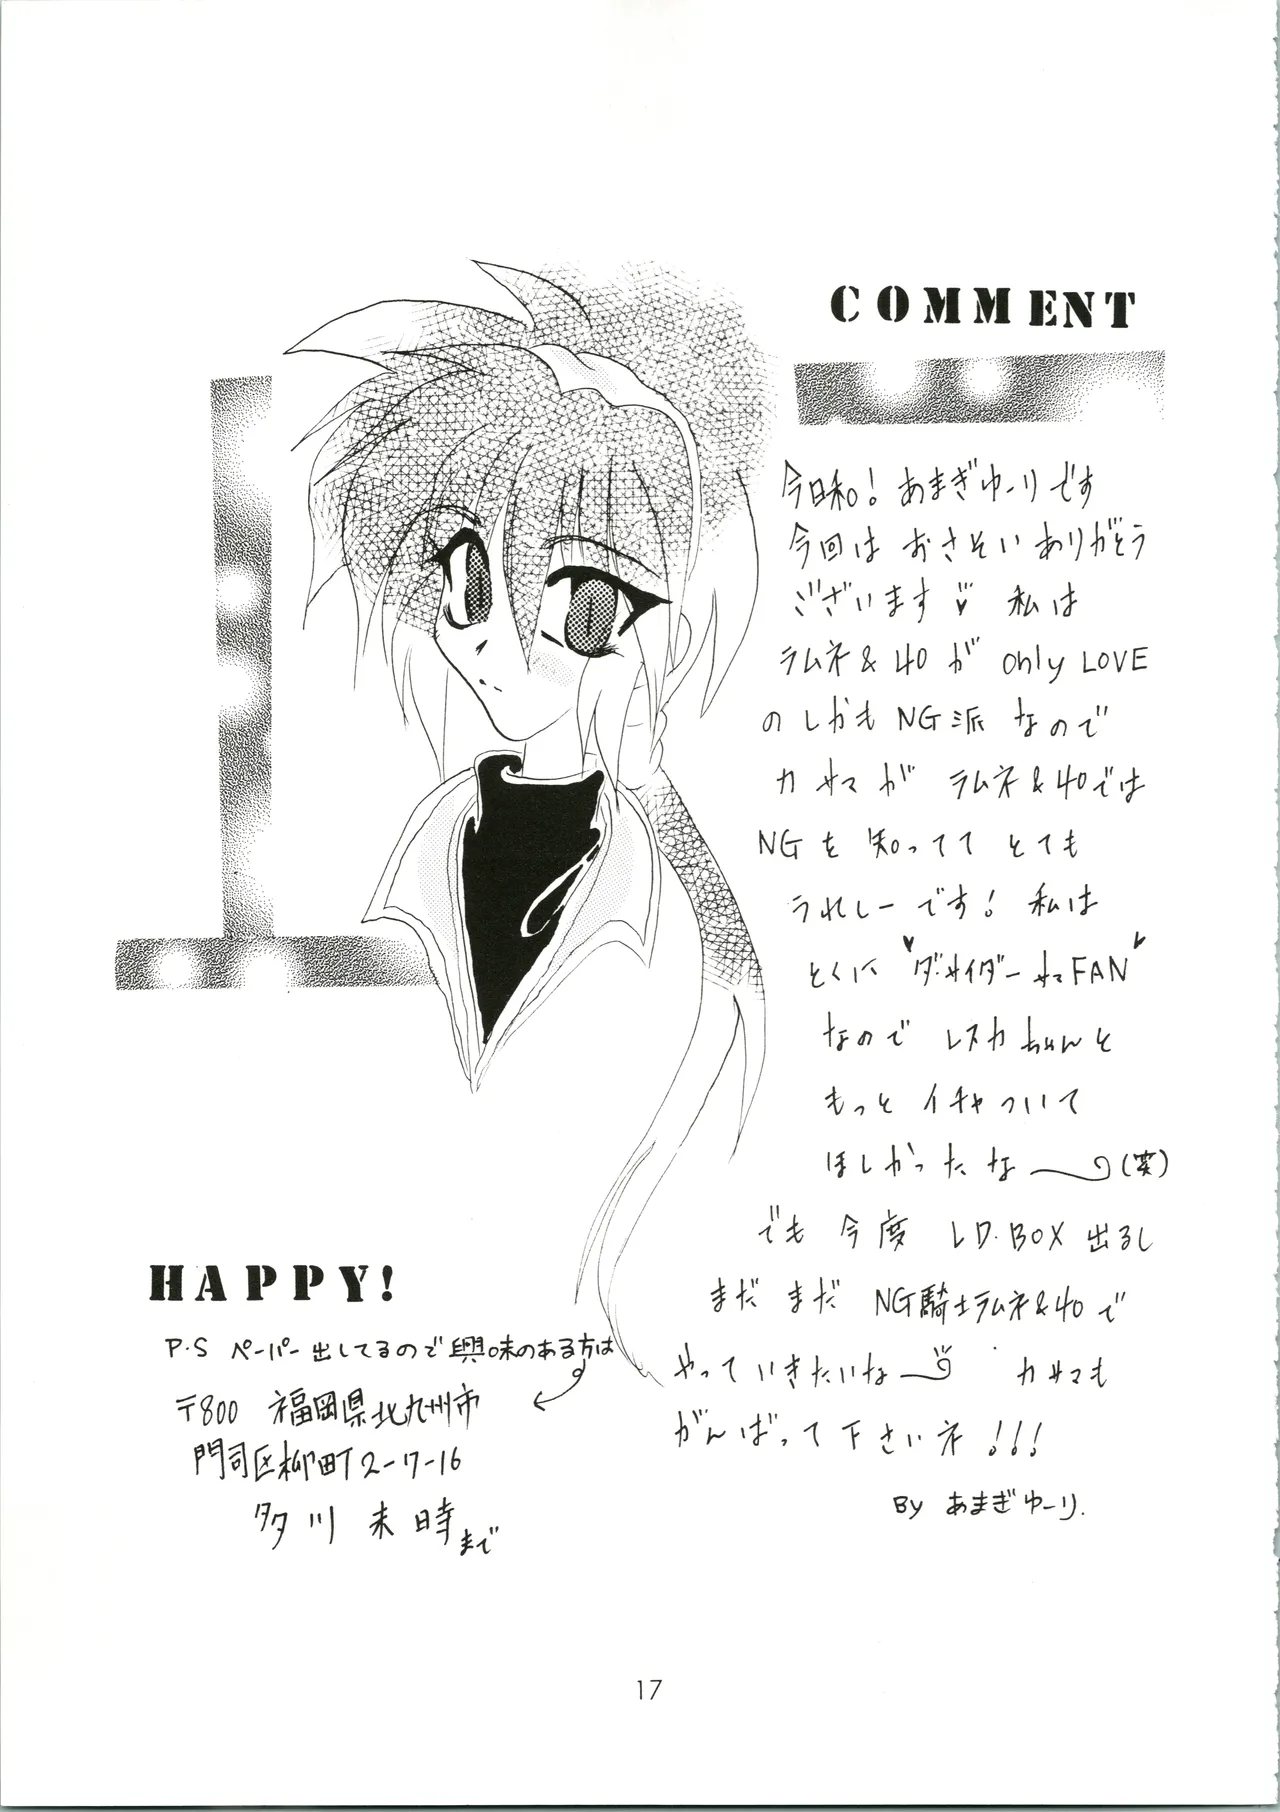 COMMENT
今日和! あまぎゆーりです
今回は おさそい ありがとう
ございます 私は
ラムネ&40が only LOVE
の しかも NG派 なので
カサマが ラムネ&40では
NGを 知ってて とても
うれしーです! 私は
とくに "ダ・サイダーサマFAN"
なので レスカちゃんと
もっと イチャついて
ほしかったな〜(笑)
でも 今度 LD.BOX 出るし
まだまだ NG騎士ラムネ&40で
やっていきたいな〜 カサマも
がんばって下さいネ!!!
By あまぎゆーり.
HAPPY!
P.S ペーパー出してるので興味のある方は
〒800 福岡県北九州市
門司区柳町2-7-16
多川 未時まで
17